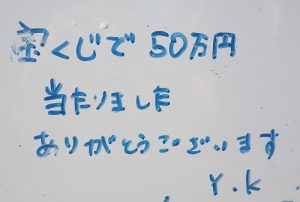 宝くじで 50万円
当たりました
ありがとうございます
Y.K